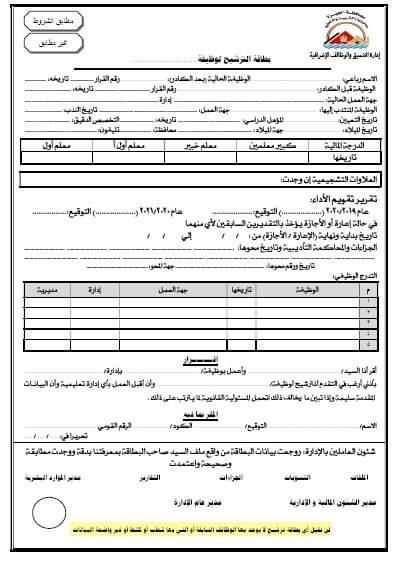 مطابق الشروط
غير مطابق
إدارة التنسيق والوظائف الإشرافية
بطاقة الترشيح لوظيفة ........................
الاسم رباعي: ........................ الوظيفة الحالية وبعد الكادر: ............ رقم القرار ............ تاريخه: ............
الوظيفة قبل الكادر: ........................ رقم القرار ............ تاريخه: ............
جهة العمل الحالية: ........................ إدارة ........................
الوظيفة المنتدب إليها: ............ جهة العمل: ............ تاريخ الندب ............
تاريخ التعيين: ............ المؤهل الدراسي: ............ تاريخه: ............ التخصص الدقيق: ............
تاريخ الميلاد: ............ جهة الميلاد: ............ محافظة ............ تليفون: ............
الدرجة المالية كبير معلمين معلم خبير معلم أول أ معلم أول
تاريخها
العلاوات التشجيعية إن وجدت:
تقرير تقويم الأداء:
عام ٢٠٢٠/٢٠١٩ (..................) التوقيع: ............ عام ٢٠٢١/٢٠٢٠ (..................) التوقيع: ............
في حالة إعارة أو الأجازة يؤخذ بالتقديرين السابقين لأي منهما
تاريخ بداية ونهاية (الإعارة / الأجازة) من: / / إلي / /
الجزاءات والمحاكمة التأديبية وتاريخ محوها: ........................
تاريخ ورقم محوها: ............ جهة المحو: ............
التدرج الوظيفي:
م الوظيفة تاريخها جهة العمل إدارة مديرية
١
٢
٣
٤
٥
إقـــــــرار
أقر أنا السيد/ ............ وأعمل بوظيفة/ ............ بإدارة/ ............
بأنني أرغب في التقدم للترشيح لوظيفة/ ............ وأن أقبل العمل بأي إدارة تعليمية وأن البيانات
المقدمة سليمة وإذا تبين ما يخالف ذلك اتحمل المسئولية القانونية لما يترتب على ذلك.
المقر بما فيه
الاسم/ ............ التوقيع/ ............ الكود/ ............ الرقم القومي
تحريرا في: .../ .../ ...
شئون العاملين بالإدارة: روجعت بيانات البطاقة من واقع ملف السيد صاحب البطاقة بمعرفتنا بدقة ووجدت مطابقة
وصحيحة واعتمدت
الملفات التسويات الجزاءات التقارير مدير الموارد البشرية
مدير الشئون المالية و الإدارية مدير عام الإدارة
لن تقبل أي بطاقة ترشيح لا يوجد بها الوظائف السابقة أو التي بها شطب أو كشط أو غير واضحة البيانات